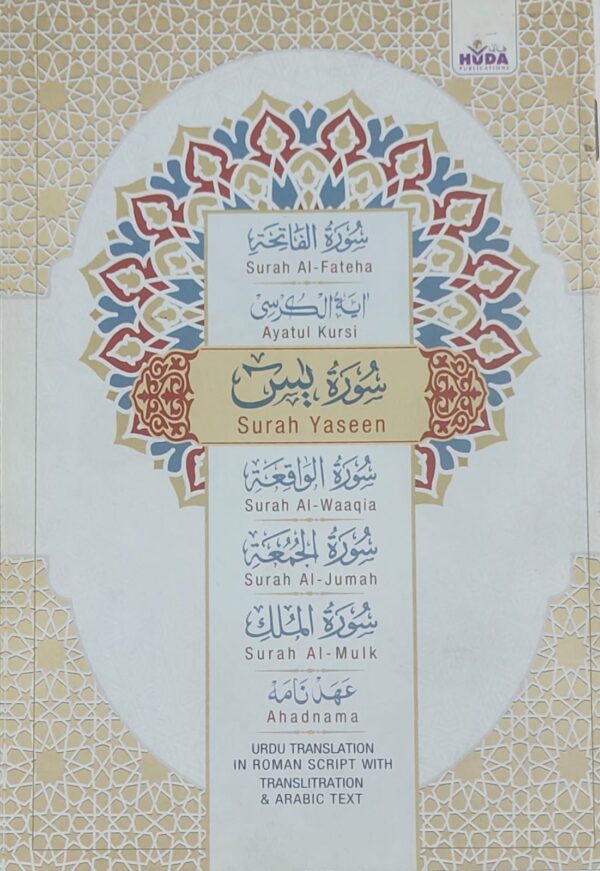 HUDA
PUBLICATIONS
سُورَةُ الْفَاتِحَةِ
Surah Al-Fateha
اٰيَةُ الْكُرْسِى
Ayatul Kursi
سُورَةُ يٰسٓ
Surah Yaseen
سُورَةُ الْوَاقِعَةِ
Surah Al-Waaqia
سُورَةُ الْجُمُعَةِ
Surah Al-Jumah
سُورَةُ الْمُلْكِ
Surah Al-Mulk
عَهَدْ نَامَہ
Ahadnama
URDU TRANSLATION
IN ROMAN SCRIPT WITH
TRANSLITRATION
& ARABIC TEXT